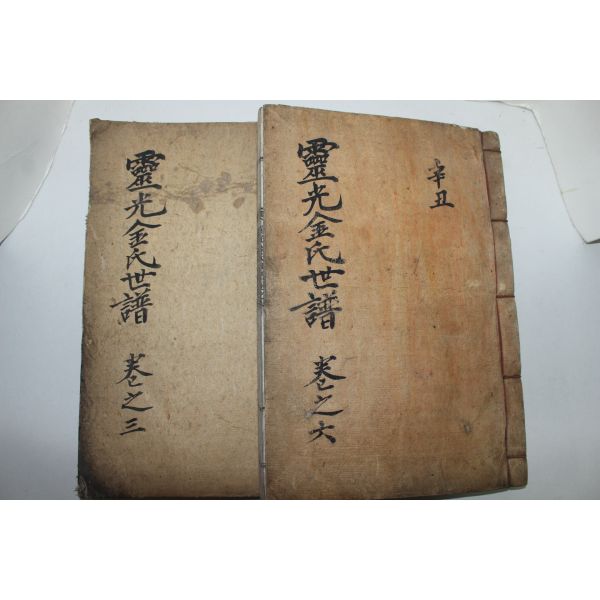 靈光金氏世譜 卷之三
靈光金氏世譜 卷之六
辛丑